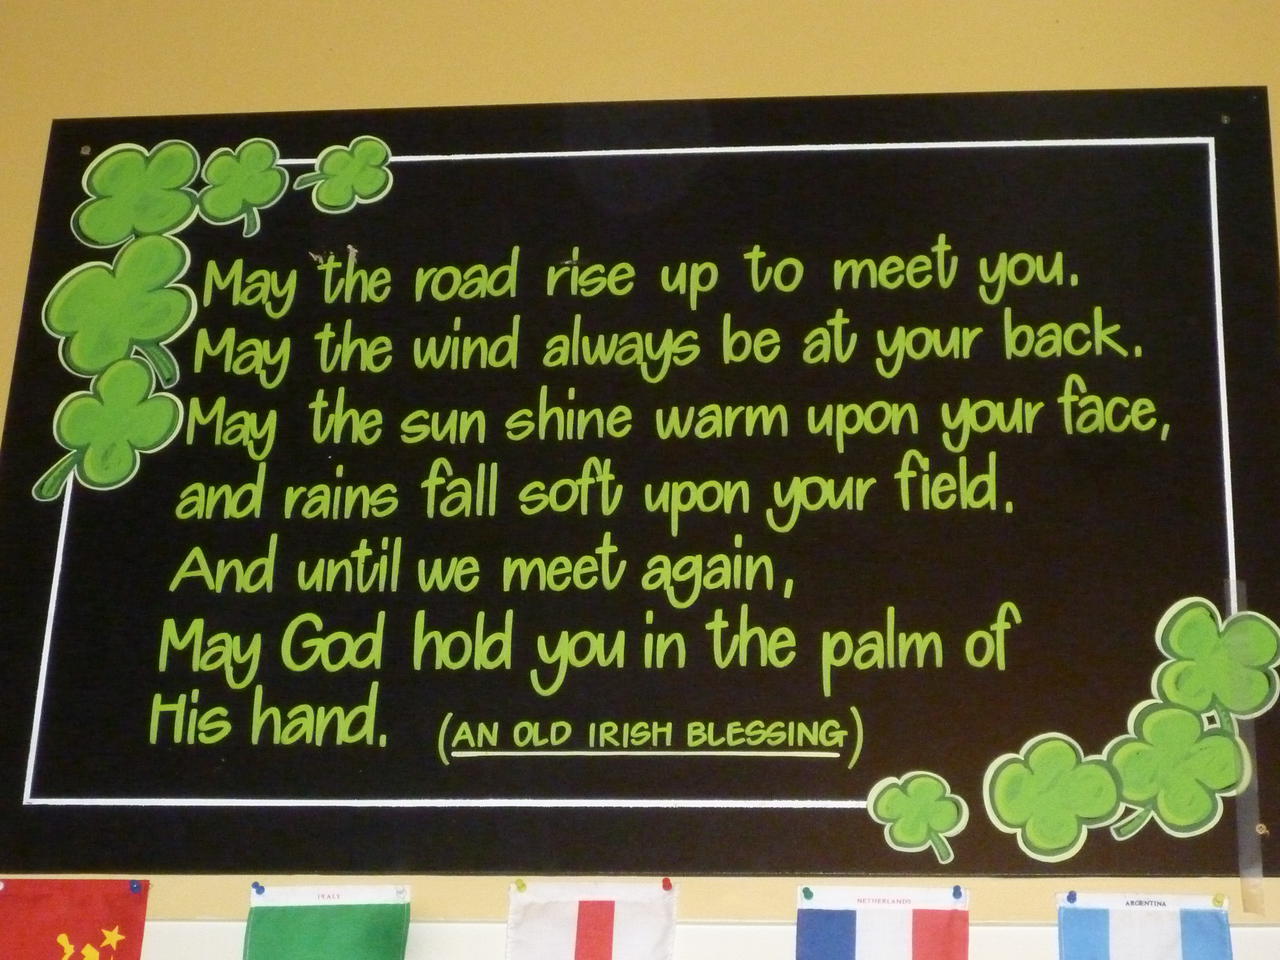 May the road rise up to meet you.
May the wind always be at your back.
May the sun shine warm upon your face,
and rains fall soft upon your field.
And until we meet again,
May God hold you in the palm of
His hand. (AN OLD IRISH BLESSING)
ITALY
NETHERLANDS
ARGENTINA